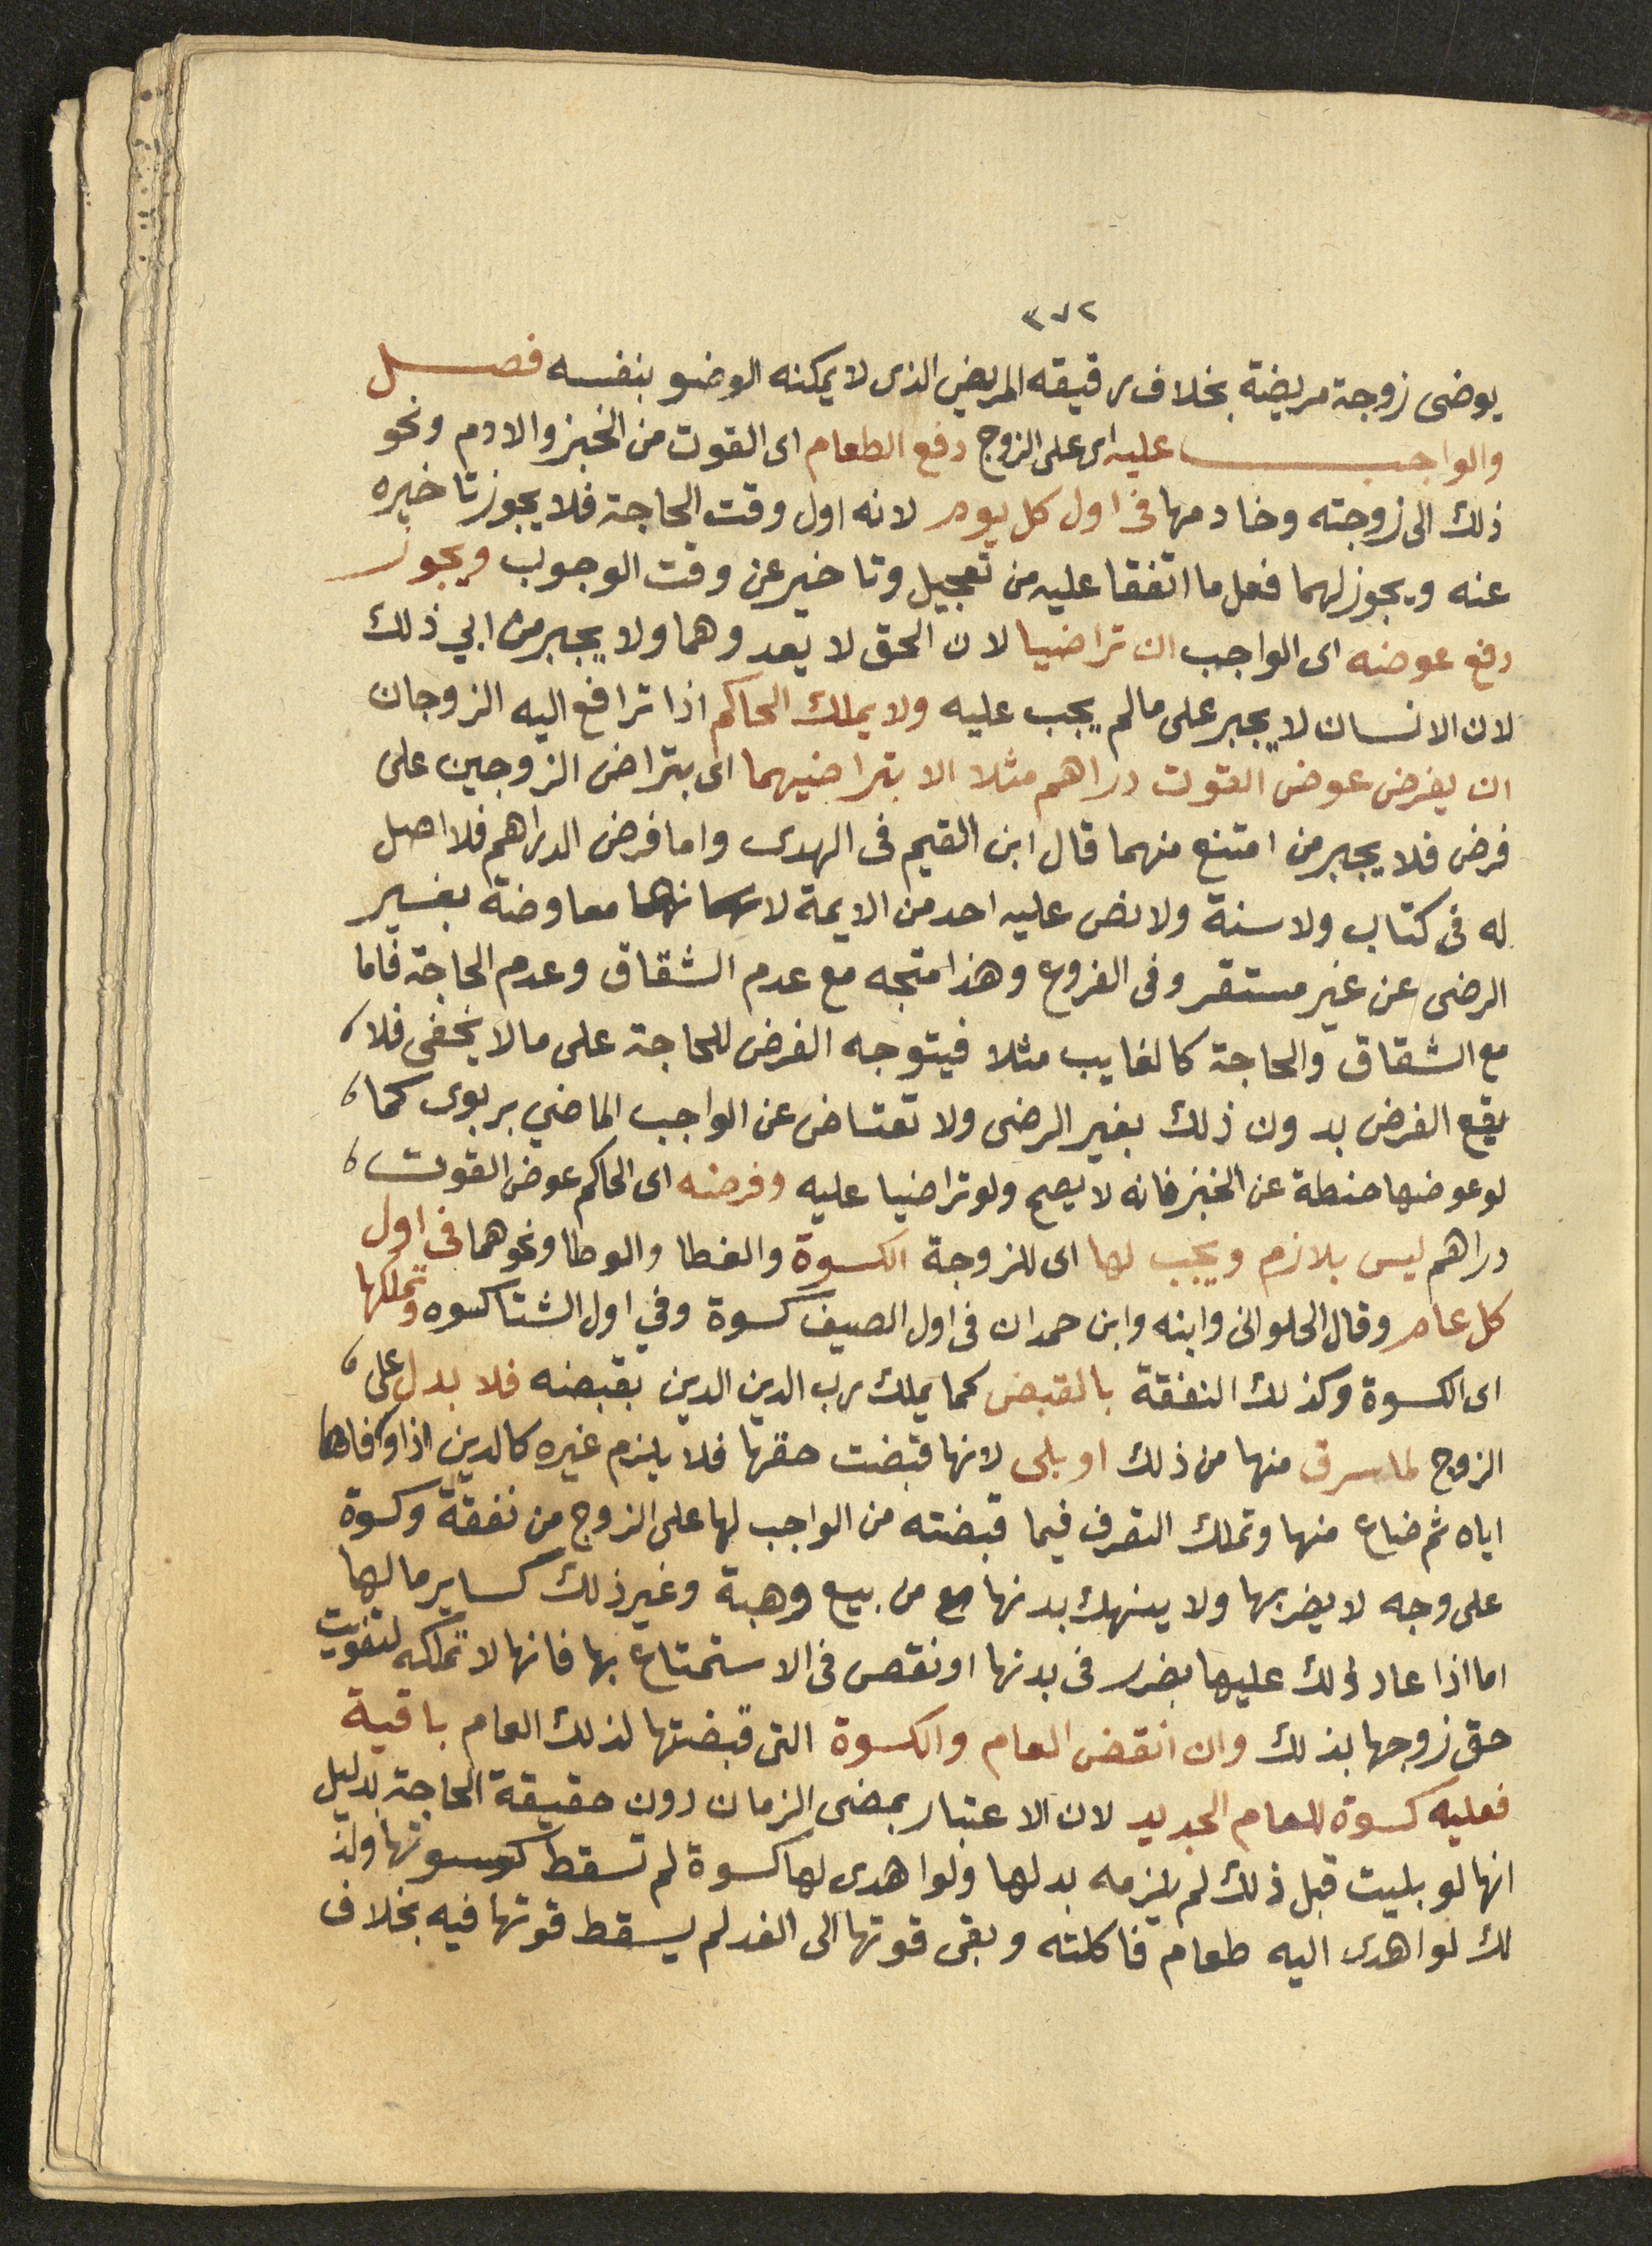 ٣٧٢
يوضى زوجة مريضة بخلاف رقيقه المريض الذى لا يمكنه الوضو بنفسه فصل
والواجب عليه اى على الزوج دفع الطعام اى القوت من الخبز والادم ونحو
ذلك الى زوجته وخادمها فى اول كل يوم لانه اول وقت الحاجة فلا يجوز تاخيره
عنه ويجوز لهما فعل ما اتفقا عليه من تعجيل وتاخير عن وقت الوجوب ويجوز
دفع عوضه اى الواجب ان تراضيا لان الحق لا يعدوهما ولا يجبر من ابي ذلك
لان الانسان لا يجبر على مالم يجب عليه ولا يملك الحاكم اذا ترافع اليه الزوجان
ان يفرض عوض القوت دراهم مثلا الا بتراضيهما اى بتراضى الزوجين على
فرض فلا يجبر من امتنع منهما قال ابن القيم فى الهدى واما فرض الدراهم فلا اصل
له فى كتاب ولا سنة ولا نص عليه احد من الايمة لانها معاوضة بغير
الرضى عن غير مستقر وفى الفروع وهذا متجه مع عدم الشقاق وعدم الحاجة فاما
مع الشقاق والحاجة كالغايب مثلا فيتوجه الفرض للحاجة على مالا يخفى فلا
يقع الفرض بدون ذلك بغير الرضى ولا تعتاض عن الواجب الماضي بربوى كما
لو عوضها حنطة عن الخبز فانه لا يصح ولو تراضيا عليه وفرضه اى الحاكم عوض القوت
دراهم ليس بلازم ويجب لها اى للزوجة الكسوة والغطا والوطا ونحوهما فى اول
كل عام وقال الحلوانى وابنه وابن حمدان فى اول الصيف كسوة وفي اول الشتا كسوه وتملكها
اى الكسوة وكذلك النفقة بالقبض كما يملك رب الدين الدين بقبضه فلا بدل على
الزوج لما سرق منها من ذلك او بلى لانها قبضت حقها فلا يلزم غيره كالدين اذا وفاها
اياه ثم ضاع منها وتملك التصرف فيما قبضته من الواجب لها على الزوج من نفقة وكسوة
على وجه لا يضر بها ولا ينهك بدنها من بيع وهبة وغير ذلك كساير مالها
اما اذا عاد ذلك عليها بضرر فى بدنها او نقص فى الاستمتاع بها فانها لا تملكه لتفويت
حق زوجها بذلك وان انقضى العام والكسوة التى قبضتها لذلك العام باقية
فعليه كسوة للعام الجديد لان الاعتبار بمضى الزمان دون حقيقة الحاجة بدليل
انها لو بليت قبل ذلك لم يلزمه بدلها ولو اهدى لها كسوة لم تسقط كسوتها وكذ
لك لو اهدى اليه طعام فاكلته وبقى قوتها الى الغد لم يسقط قوتها فيه بخلاف